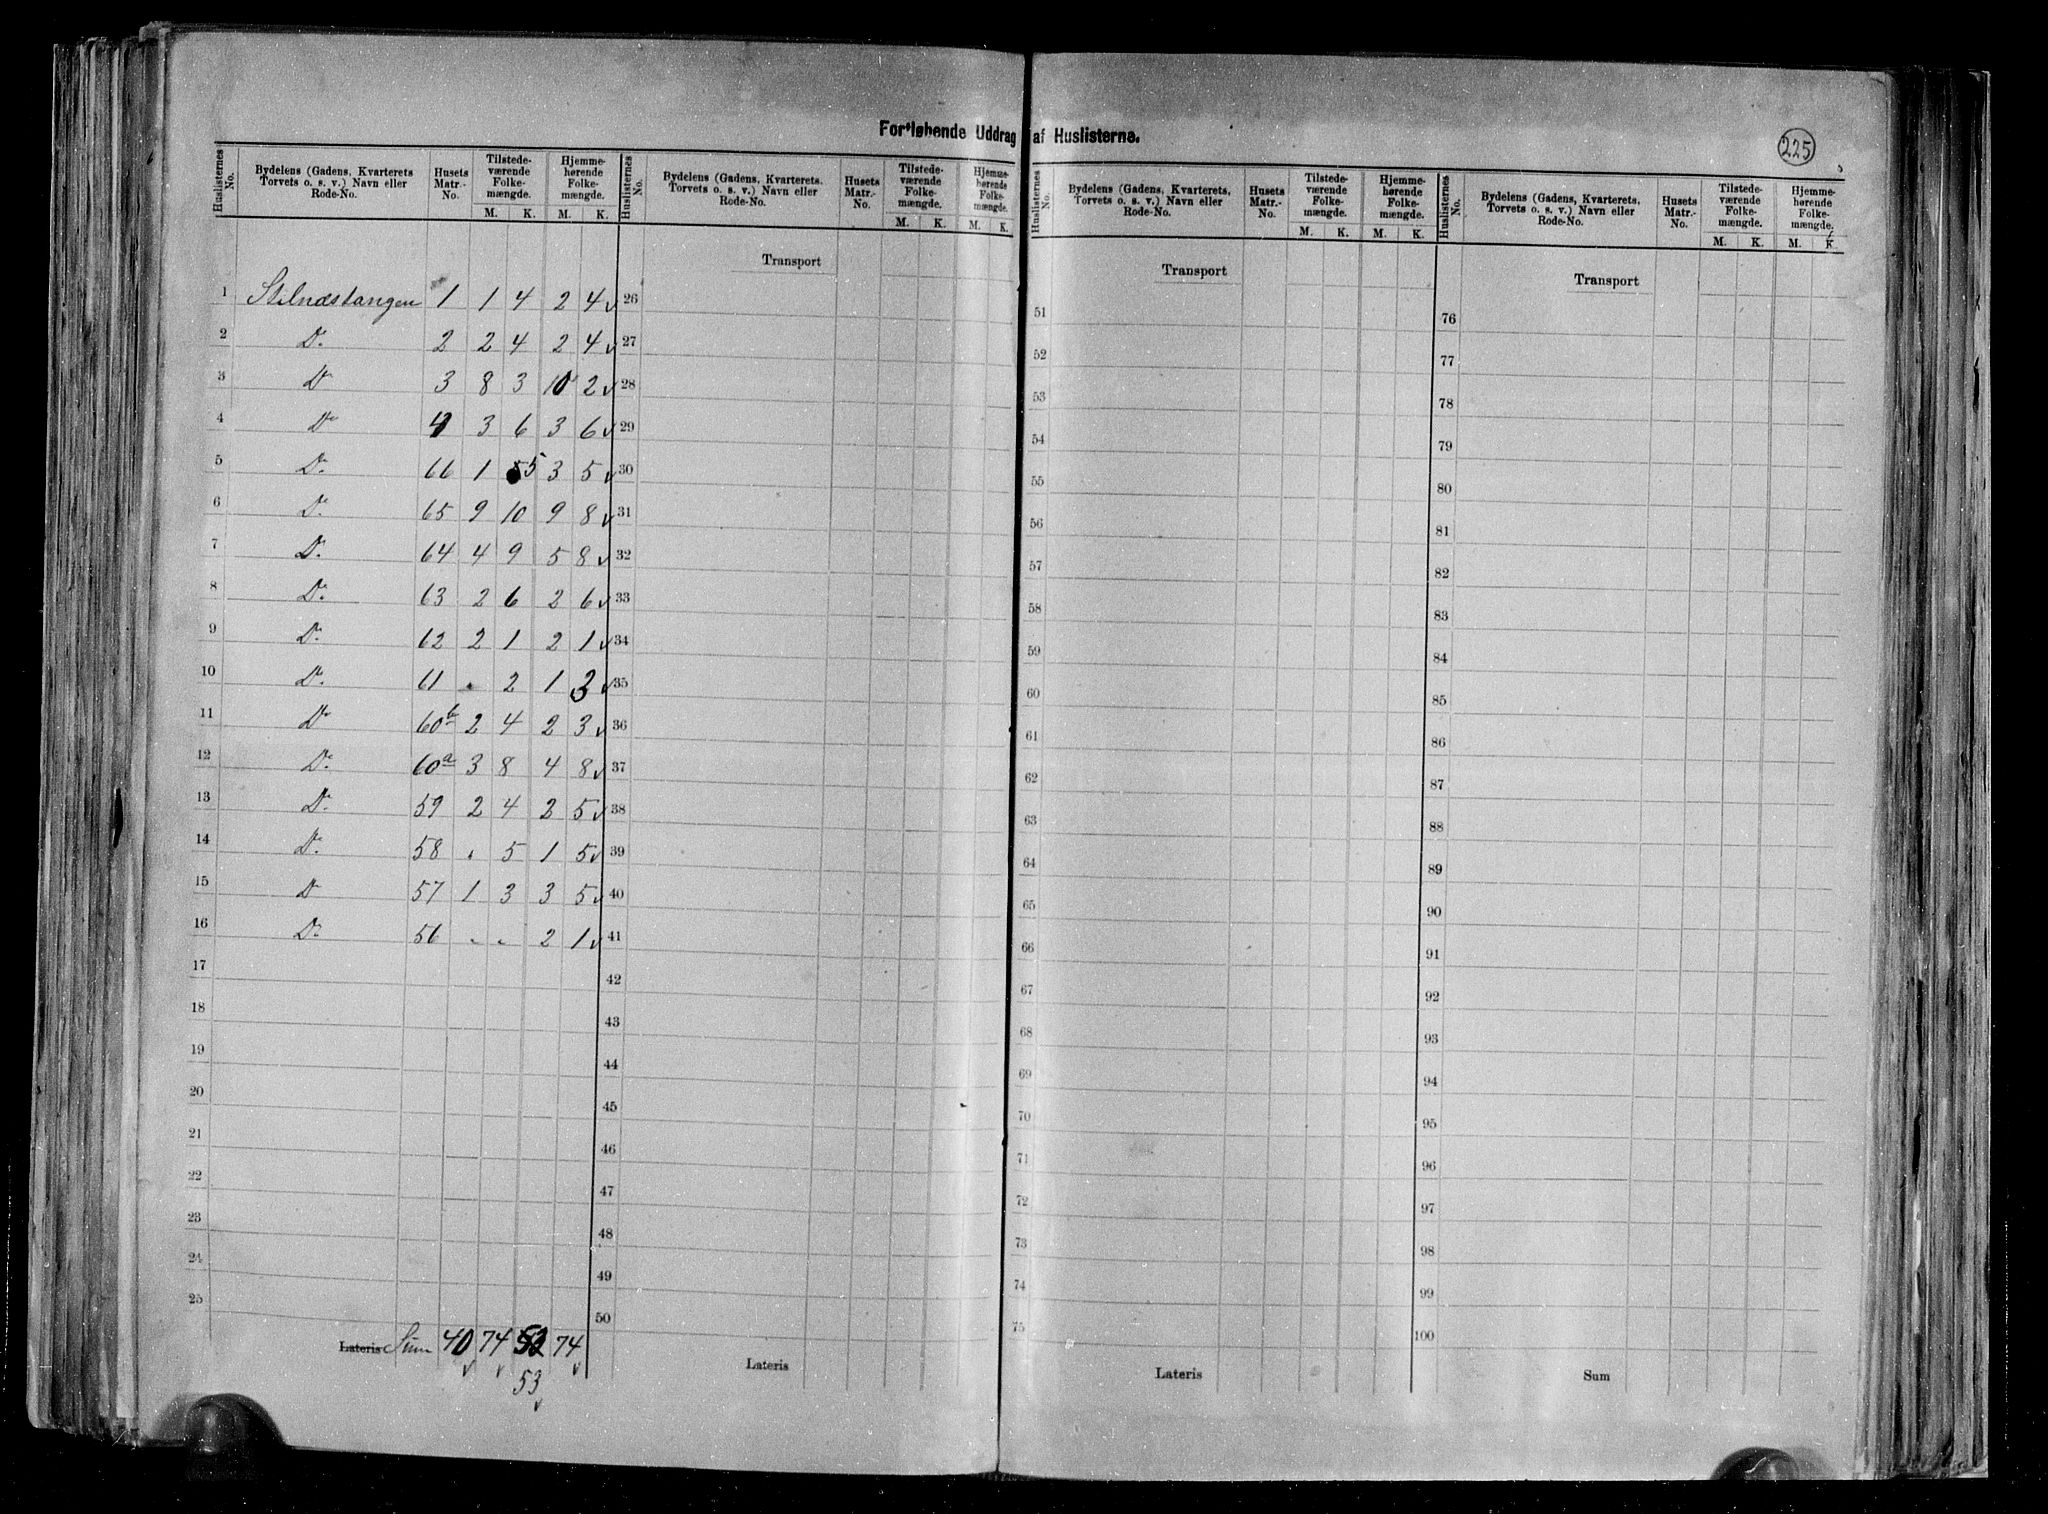 Fortløbende Uddrag af Huslisterne.
225
Huslisternes No. | Bydelens (Gadens, Kvarterets Torvets o. s. v.) Navn eller Rode-No. | Husets Matr.-No. | Tilstedeværende Folkemængde. M. K. | Hjemmehørende Folkemængde. M. K.
Huslisternes No. | Bydelens (Gadens, Kvarterets, Torvets o. s. v.) Navn eller Rode-No. | Husets Matr.-No. | Tilstedeværende Folkemængde. M. K. | Hjemmehørende Folkemængde. M. K.
Huslisternes No. | Bydelens (Gadens, Kvarterets, Torvets o. s. v.) Navn eller Rode-No. | Husets Matr.-No. | Tilstedeværende Folkemængde. M. K. | Hjemmehørende Folkemængde. M. K.
Huslisternes No. | Bydelens (Gadens, Kvarterets, Torvets o. s. v.) Navn eller Rode-No. | Husets Matr.-No. | Tilstedeværende Folkemængde. M. K. | Hjemmehørende Folkemængde. M. K.
Transport
Transport
Transport
1 Stilnæstangen 1 1 4 2 4 26 51 76
2 Do. 2 2 4 2 4 27 52 77
3 Do 3 8 3 10 2 28 53 78
4 Do 4 3 6 3 6 29 54 79
5 Do. 66 1 5 3 5 30 55 80
6 Do. 65 9 10 9 8 31 56 81
7 Do. 64 4 9 5 8 32 57 82
8 Do. 63 2 6 2 6 33 58 83
9 Do. 62 2 1 2 1 34 59 84
10 Do. 61 . 2 1 3 35 60 85
11 Do 60b 2 4 2 3 36 61 86
12 Do. 60a 3 8 4 8 37 62 87
13 Do. 59 2 4 2 5 38 63 88
14 Do. 58 . 5 1 5 39 64 89
15 Do 57 1 3 3 5 40 65 90
16 Do 56 . . 2 1 41 66 91
17 42 67 92
18 43 68 93
19 44 69 94
20 45 70 95
21 46 71 96
22 47 72 97
23 48 73 98
24 49 74 99
25 50 75 100
Lateris Sum 40 74 52 74
53
Lateris
Lateris
Sum